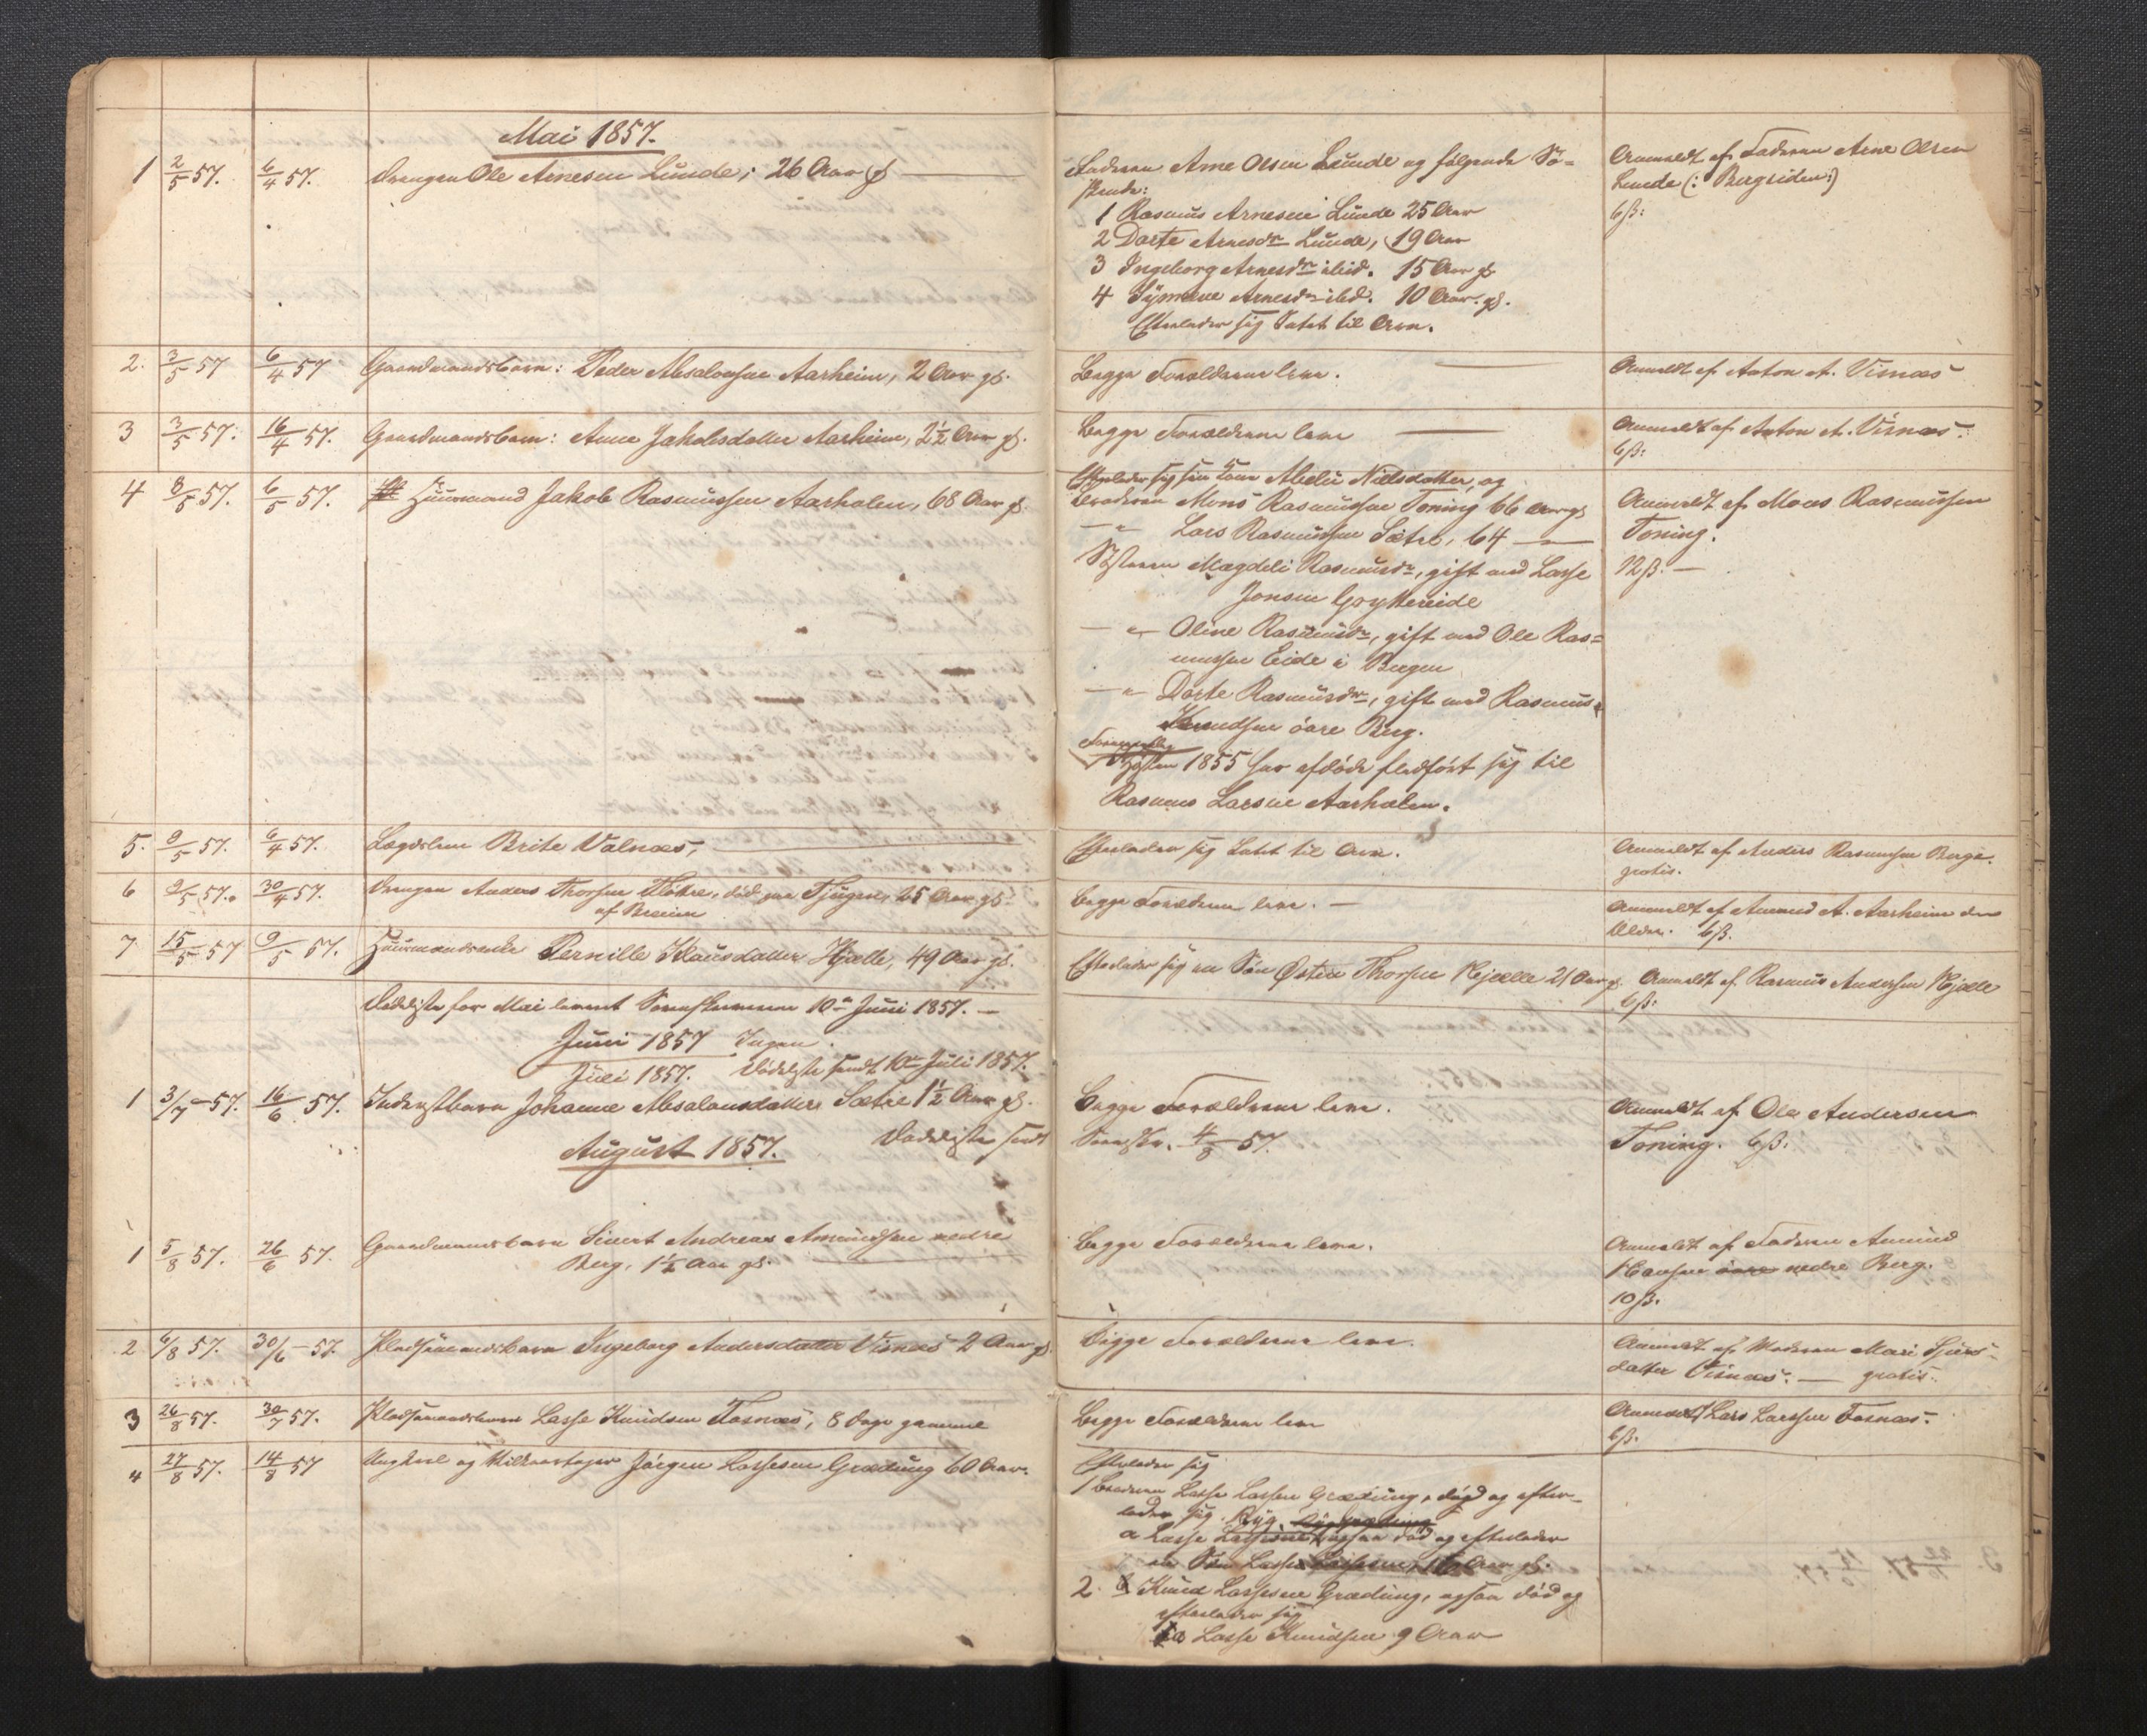 Mai 1857.
1 2/5 57. 6/4 57. Drengen Ole Arnesen Lunde, 26 Aar gl
Faderen Arne Olsen Lunde og følgende Sø-
skende:
1 Rasmus Arnesen Lunde 25 Aar
2 Dorte Arnesdr Lunde, 19 Aar
3 Ingeborg Arnesdr ibid. 15 Aar gl.
4 Symine Arnesdr ibd. 10 Aar. gl.
Efterlader sig Intet til Arv.
Anmeldt af Faderen Arne Olsen
Lunde (: Bergsiden:)
6 ß:
2. 3/5 57 6/4 57 Gaardmandsbarn: Peder Absalonsen Aarheim, 2 Aar gl.
Begge Forældrene leve.
Anmeldt af Anton A. Visnæs
3 3/5 57. 16/4 57. Gaardmandsbarn: Anne Jakobsdatter Aarheim, 2½ Aar gl.
Begge Forældrene leve
Anmeldt af Anton A. Visnæs.
6 ß:
4 8/5 57. 6/5 57. Huusmand Jakob Rasmussen Aarholen, 68 Aar gl.
Efterlader sig sin Kone Abelü Nielsdatter, og
Broderen Mons Rasmussen Toning 66 Aar gl
— " Lars Rasmussen Sætre, 64 —
Søsteren Magdeli Rasmusdr, gift med Lasse
Jonsen Gryttereide
— " Oline Rasmusdr, gift med Ole Ras=
mussen Eide i Bergen
— " Dorte Rasmusdr, gift med Rasmus
Knudsen övre Berg.
Høsten 1855 har afdøde fledført sig til
Rasmus Larsen Aarholen.
Anmeldt af Mons Rasmussen
Toning.
12 ß. —
5. 9/5 57. 6/4 57. Lægdslem Brite Valnæs,
Efterlader sig Intet til Arv.
Anmeldt af Anders Rasmussen Berge.
gratis.
6 9/5 57. 30/4 57. Drengen Anders Thorsen Flore, død paa Tjugen, 25 Aar gl.
af Breim
Begge Forældrene leve. —
Anmeldt af Amund A. Aarheim den
Ældre. 6 ß.
7. 15/5 57 9/5 57. Huusmandsenke Pernille Klausdatter Hjelle, 49 Aar gl.
Efterlader sig en Søn Østen Thorsen Hjelle 21 Aar gl.
Anmeldt af Rasmus Andersen Hjelle
6 ß:
Dødsliste for Mai levert Sorenskriveren 10de Juni 1857. —
Juni 1857 Ingen.
Juli 1857. Dødsliste sendt 10de Juli 1857.
1 3/7 57. 16/6 57. Inderstbarn Johanne Absalonsdatter Sætre 1½ Aar gl.
Begge Forældrene leve.
Anmeldt af Ole Andersen
Toning. 6 ß:
August 1857. Dødsliste sendt
Sorenskr. 4/8 57.
1 5/8 57. 26/6 57. Gaardmandsbarn Sivert Andreas Amundsen nedre
Berg, 1½ Aar gl.
Begge Forældrene leve.
Anmeldt af Faderen Amund
Hansen övre nedre Berg.
10 ß.
2 6/8 57. 30/6 57. Pladsmandsbarn Ingeborg Andersdatter Visnæs 2 Aar gl
Begge Forældrene leve.
Anmeldt af Moderen Mari Sjurs-
datter Visnæs. — gratis.
3 26/8 57. 30/7 57. Pladsmandsbarn Lasse Knudsen Fosnæs, 8 Dage gamme
Begge Forældrene leve
Anmeldt Lars Larssen Fosnæs.
6 ß.
4 27/8 57. 14/8 57 Ungkarl og Kilkaarstager Jörgen Lassesen Grædung 60 Aar.
Efterlader sig
1 Broderen Lasse Lassen Grædung, död og efter-
lader sig
a Lasse Lassesen, ogsaa död og efterlader
en Søn Lasse Lassesen, 16 Aar gl.
2. Knud Lassesen Grædung, ogsaa död og
efterlader sig
a Lasse Knudsen 9 Aar